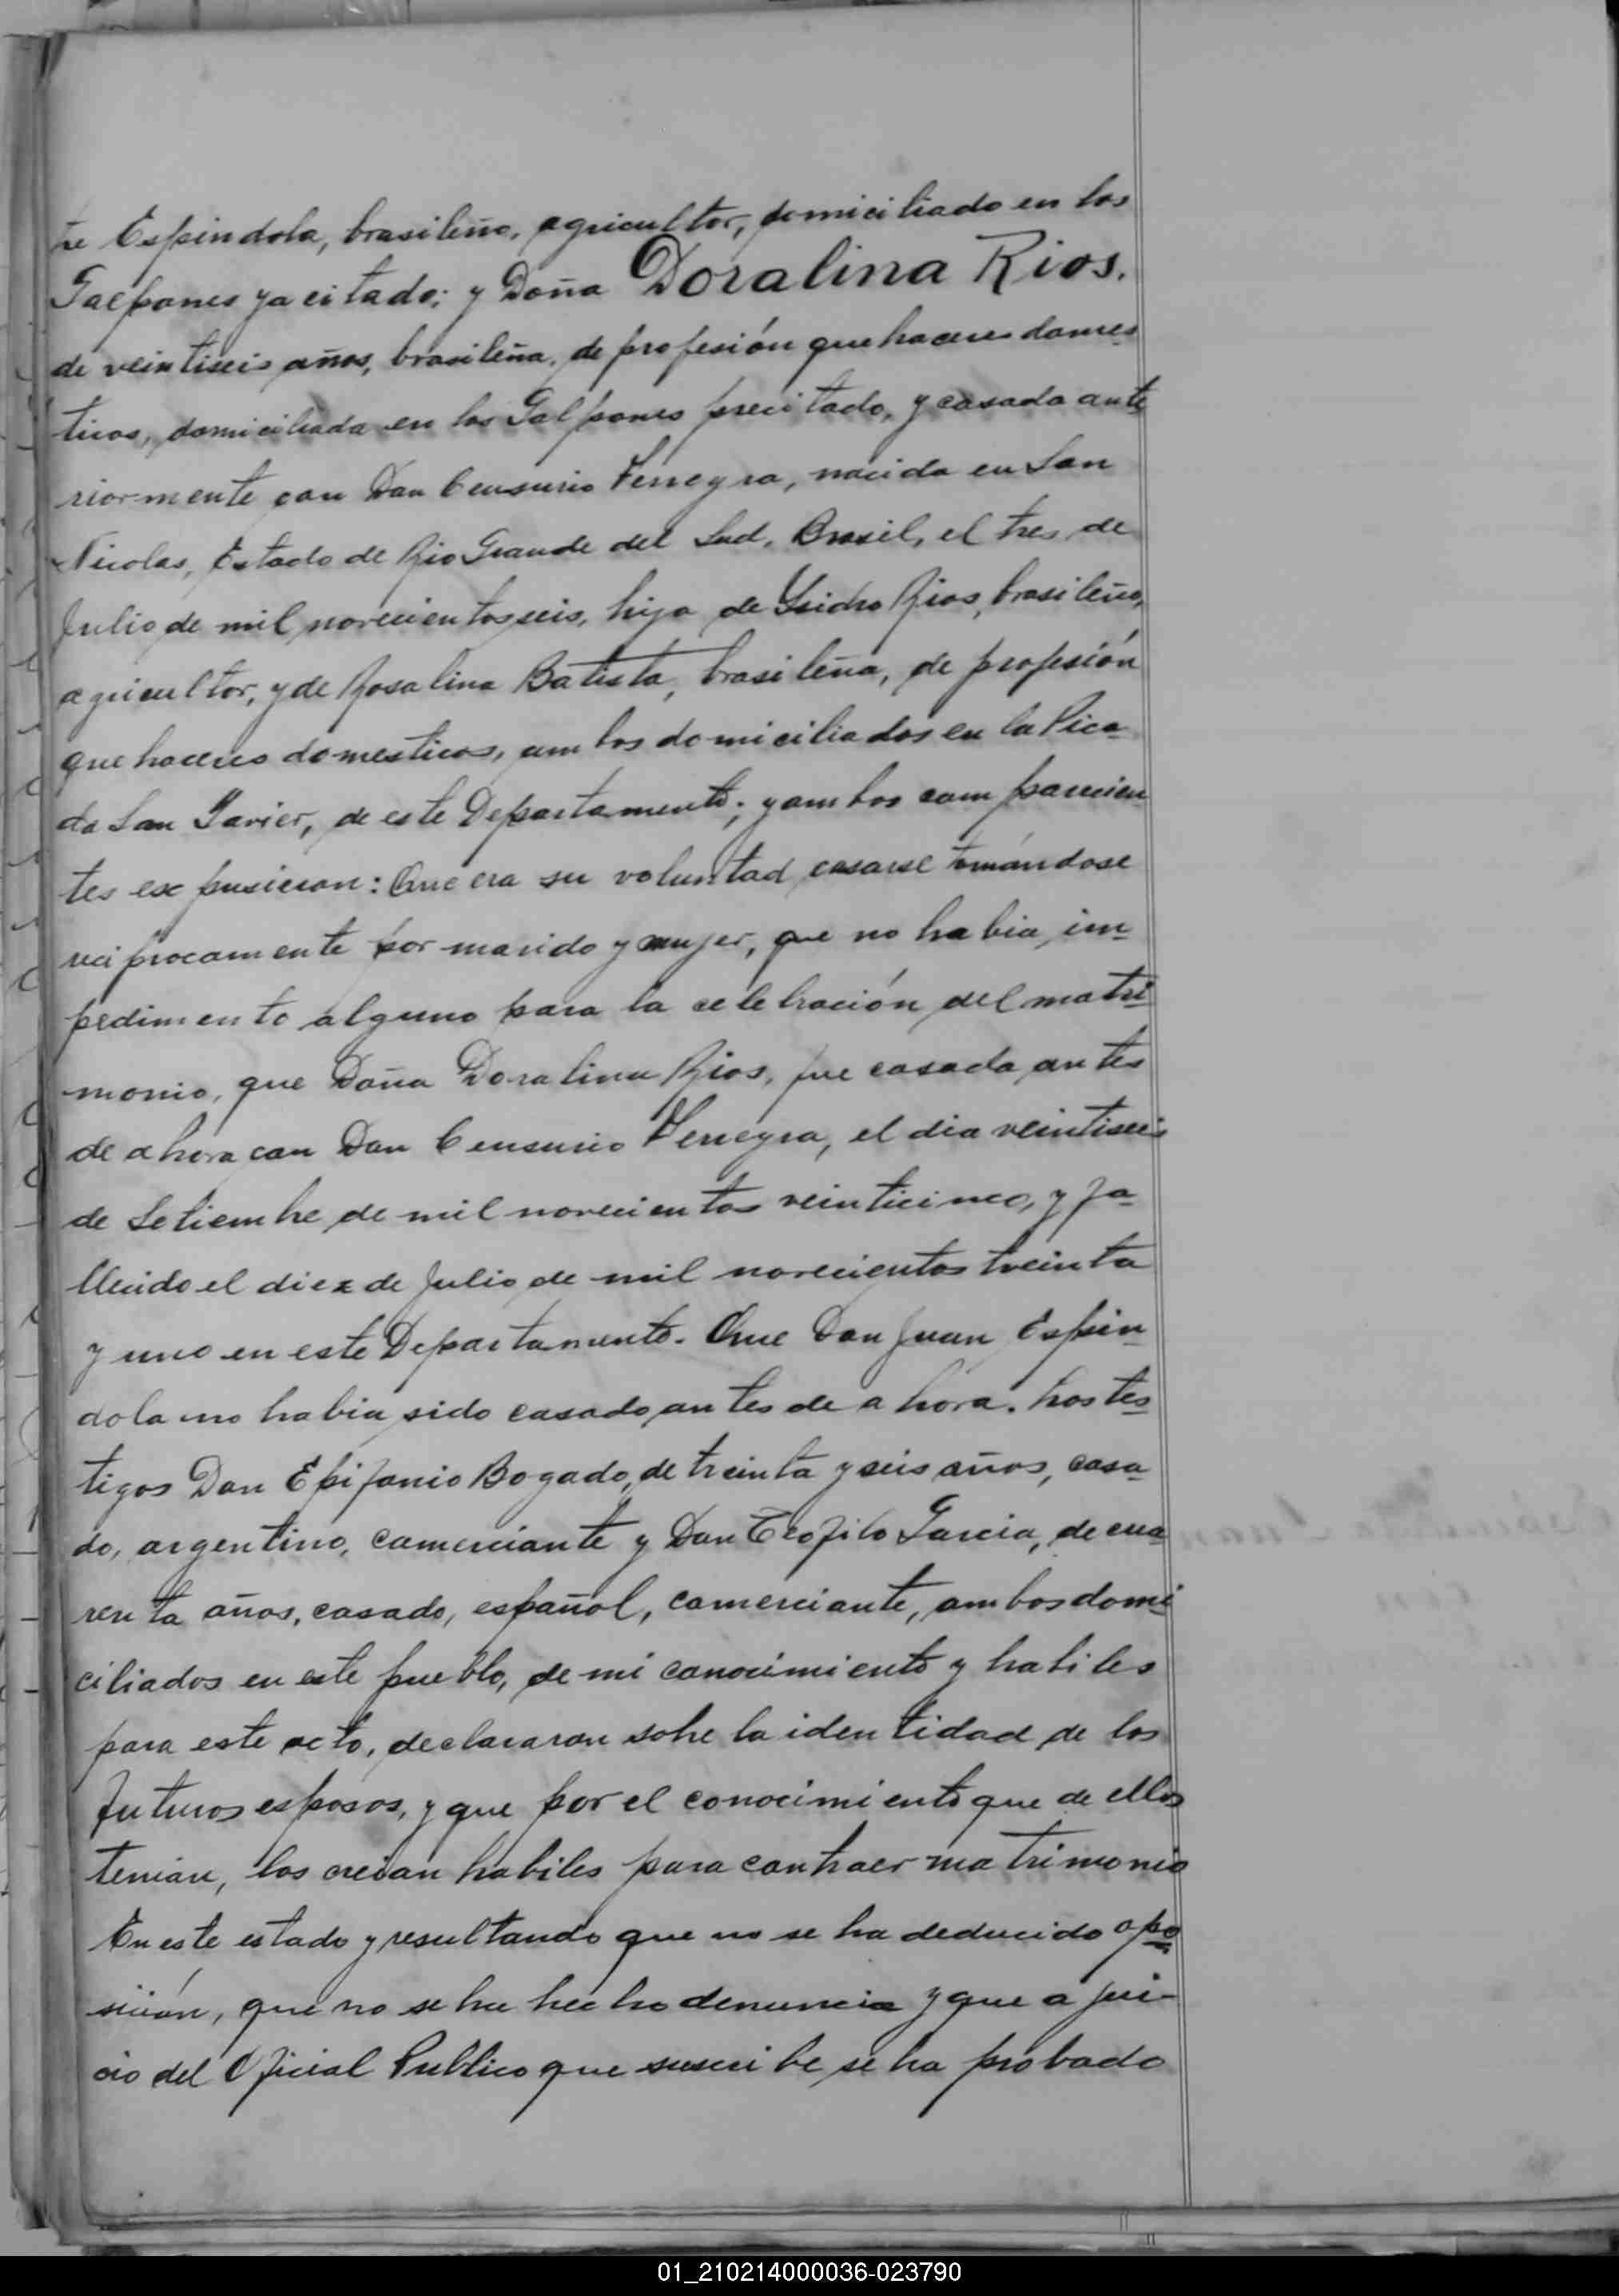 te Espindola, brasileño, agricultor, domiciliado en los
Galpones ya citado; y Doña Doralina Rios.
de veintiseis años, brasileña, de profesión quehaceres domes
ticos, domiciliada en los Galpones precitado, y casada ante
riormente con Don Censurio Ferreyra, nacida en San
Nicolas, Estado de Rio Grande del Sud, Brasil, el tres de
Julio de mil novecientos seis, hija de Ysidro Rios, brasileño,
agricultor, y de Rosalina Batista, brasileña, de profesión
quehaceres domesticos, ambos domiciliados en la Pica
da San Javier, de este Departamento; y ambos comparecien
tes expusieron: Que era su voluntad casarse tomándose
reciprocamente por marido y mujer, que no habia im
pedimento alguno para la celebración del matri
monio, que Doña Doralina Rios, fue casada antes
de ahora con Don Censurio Ferreyra, el dia veintiseis
de Setiembre de mil novecientos veinticinco, y fa
llecido el diez de Julio de mil novecientos treinta
y uno en este Departamento. Que Don Juan Espin
dola no habia sido casado antes de ahora. Los tes
tigos Don Epifanio Bogado, de treinta y seis años, casa
do, argentino, comerciante y Don Teofilo Garcia, de cua
renta años, casado, español, comerciante, ambos domi
ciliados en este pueblo, de mi conocimiento y habiles
para este acto, declararon sobre la identidad de los
futuros esposos, y que por el conocimiento que de ellos
tenian, los creian habiles para contraer matrimonio
En este estado y resultando que no se ha deducido opo
sición, que no se ha hecho denuncia y que a jui-
cio del Oficial Publico que suscribe se ha probado
01_210214000036-023790